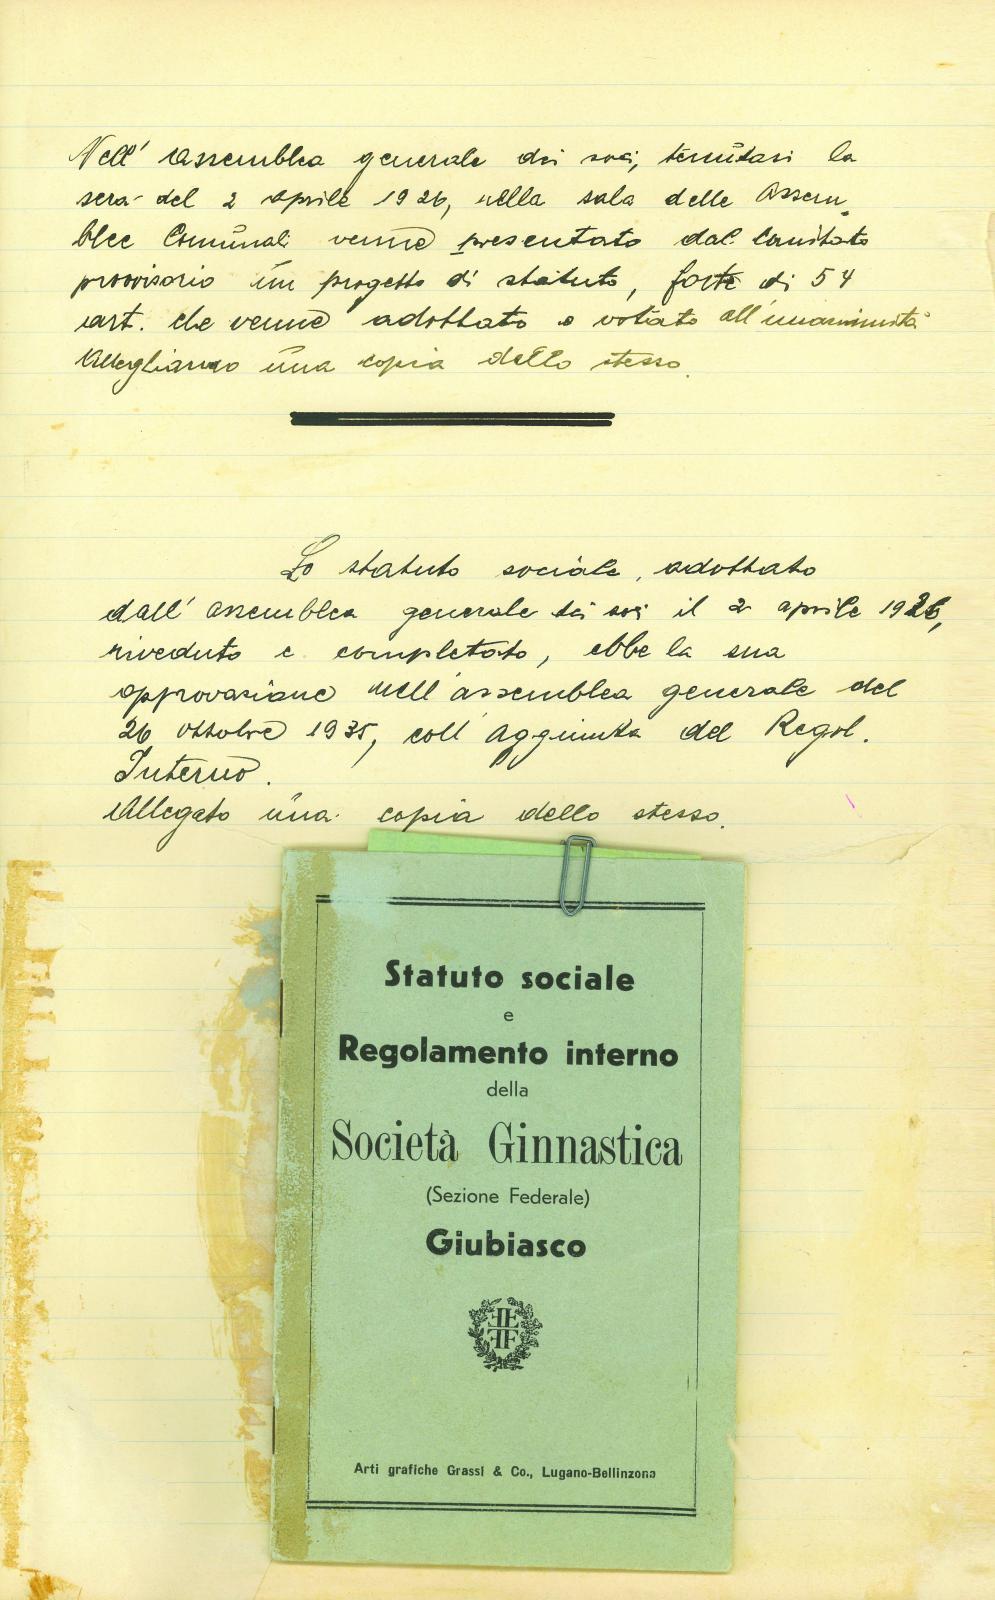 Nell' assemblea generale dei soci, tenutasi la
sera del 2 aprile 1926, nella sala delle Assem_
blee Comunali venne presentato dal Comitato
provvisorio un progetto di statuto, forte di 54
art. che venne adottato e votato all'unanimità
Alleghiamo una copia dello stesso.
Lo statuto sociale, adottato
dall' assemblea generale dei soci il 2 aprile 1926,
riveduto e completato, ebbe la sua
approvazione nell'assemblea generale del
26 ottobre 1935, coll' aggiunta del Regol.
Interno.
Allegato una copia dello stesso.
Statuto sociale
e
Regolamento interno
della
Società Ginnastica
(Sezione Federale)
Giubiasco
Arti grafiche Grassi & Co., Lugano-Bellinzona